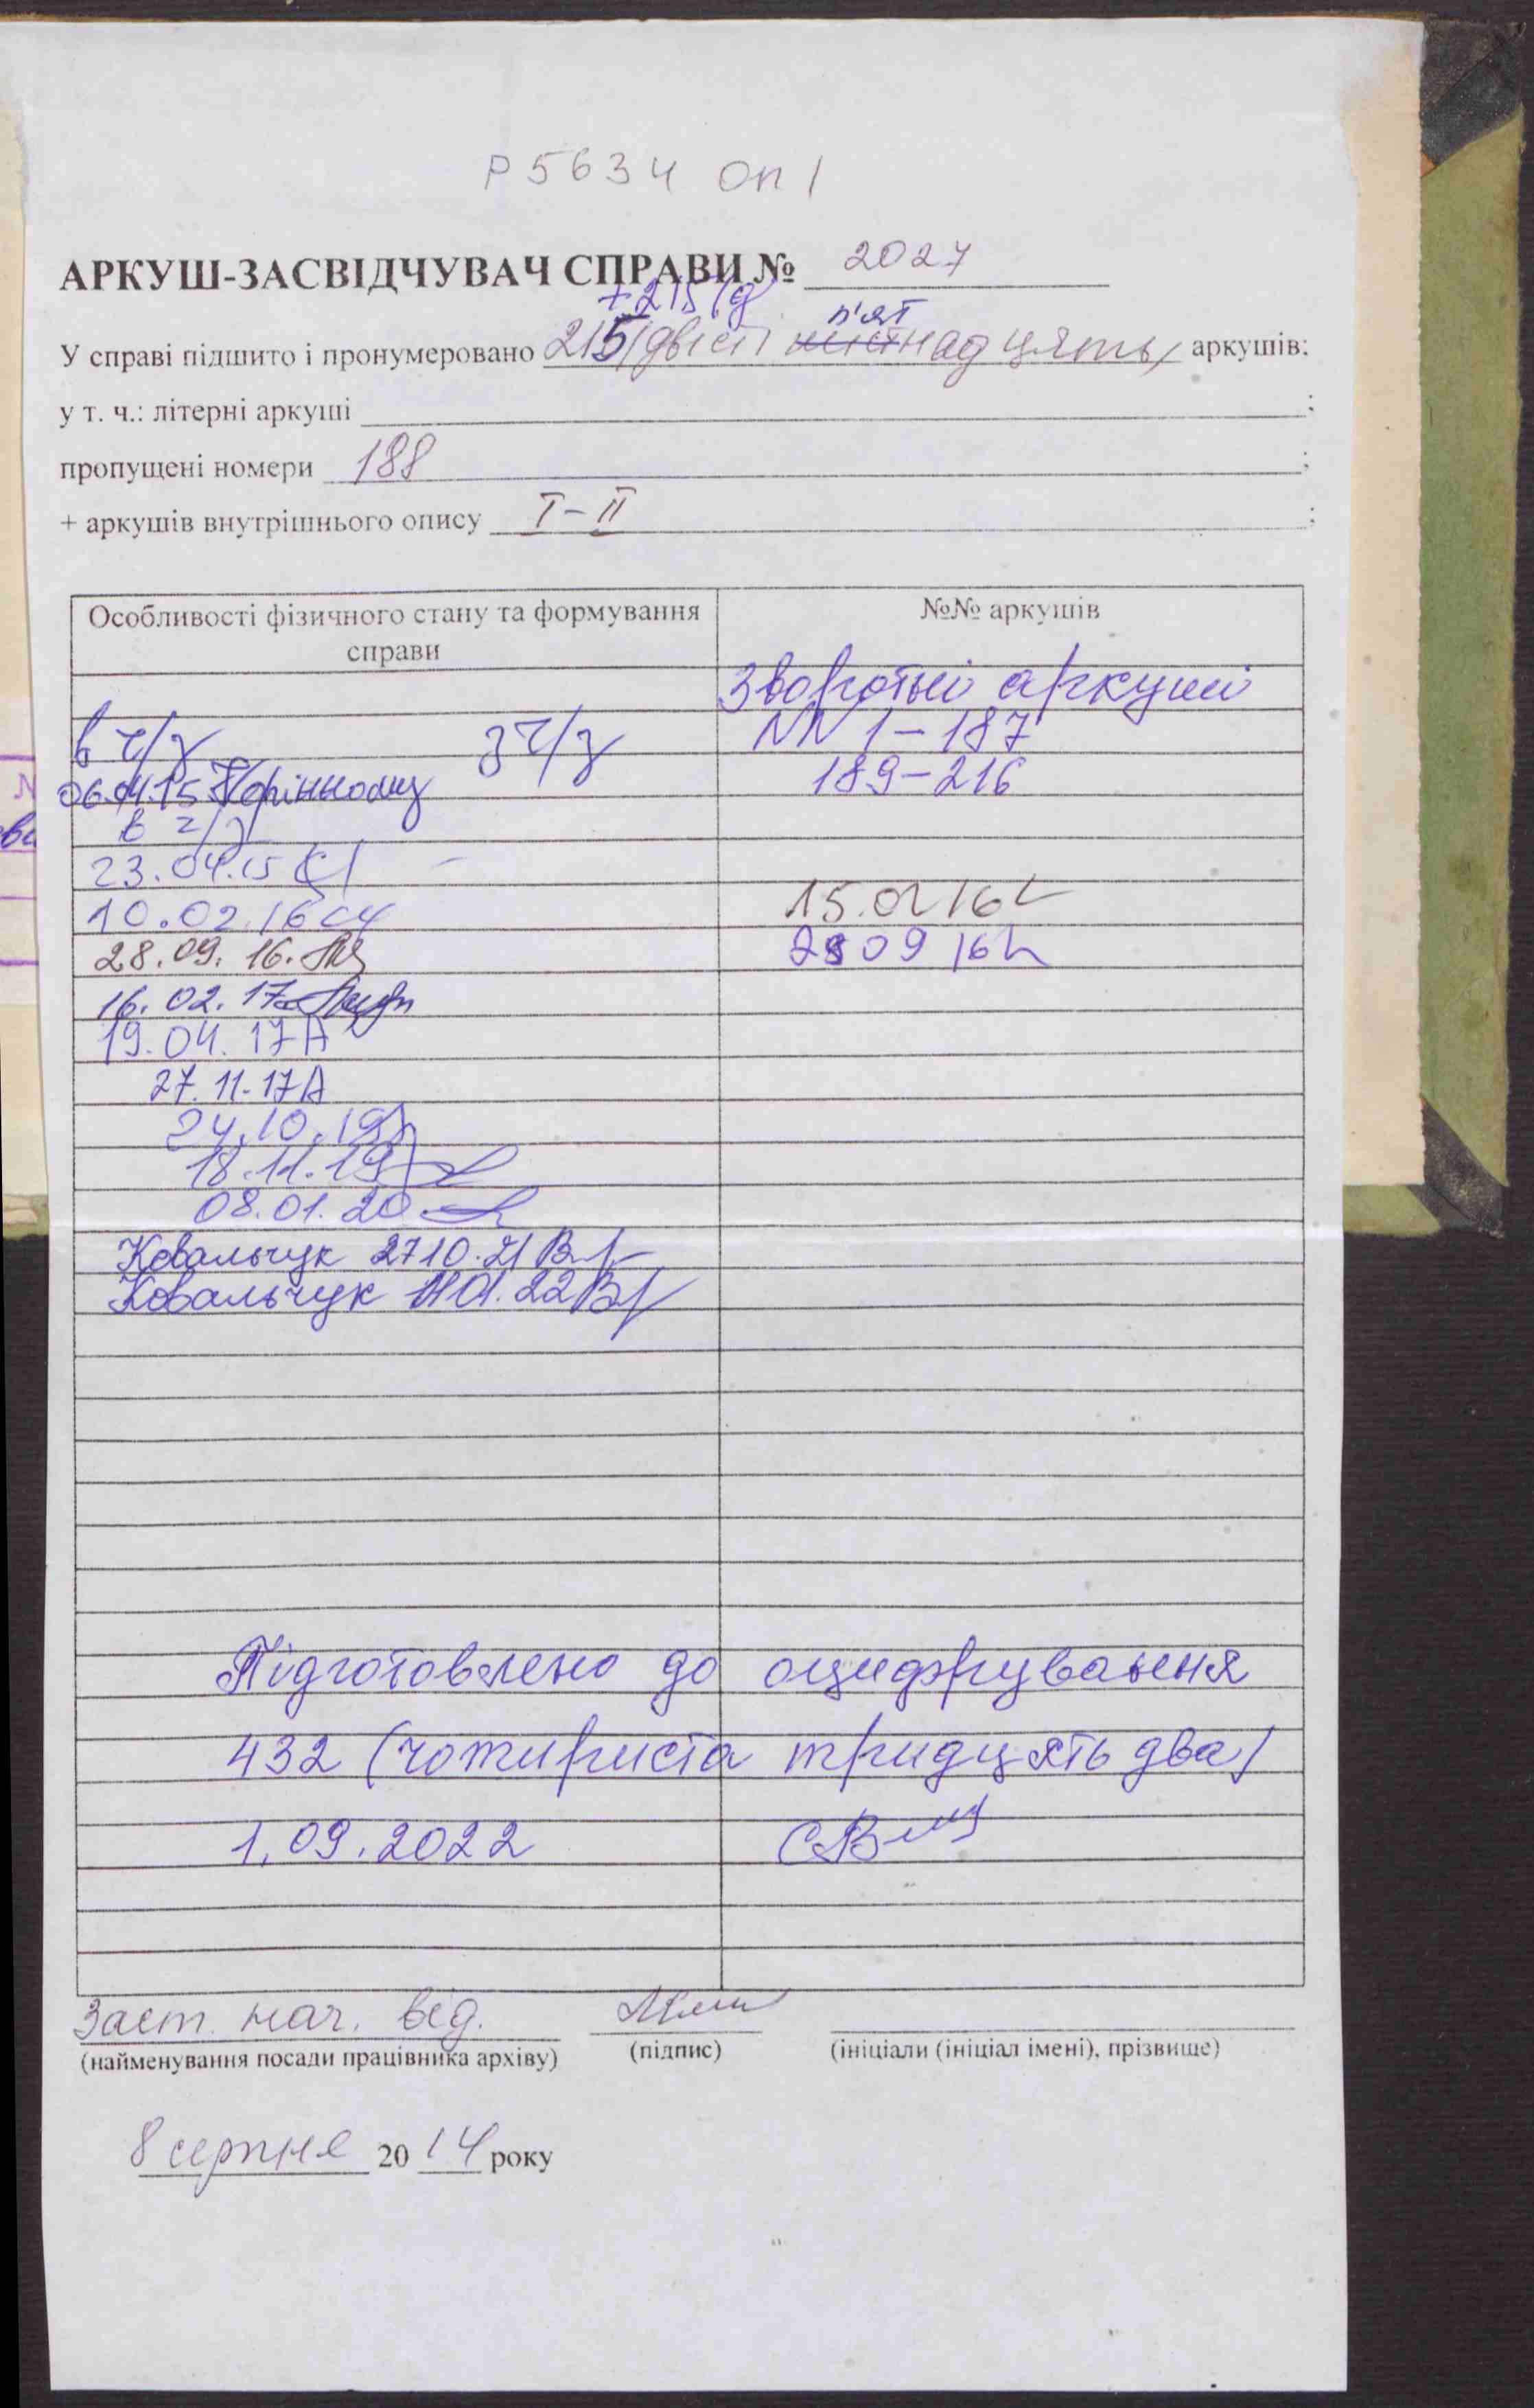 Р5634 оп 1
АРКУШ-ЗАСВІДЧУВАЧ СПРАВИ № 2027
+215 (д)
п'ят
У справі підшито і пронумеровано 215 (двісті надцять) аркушів;
у т. ч.: літерні аркуші ;
пропущені номери 188 ;
+ аркушів внутрішнього опису I-II ;
Особливості фізичного стану та формування справи
№№ аркушів
Зворотні аркуші
в ч/з з ч/з NN 1-187
06.04.15 189-216
в ч/з
23.04.15
10.02.16 15.02 16
28.09.16. 28 09 16
16.02.17
19.04.17 А
27.11.17 А
24.10.19
18.11.19
08.01.20
Ковальчук 27 10.21 Вр
Ковальчук 11 01.22 Вр
Підготовлено до оцифрування
432 (чотириста тридцять два)
1.09.2022
Заст. нач. від.
(найменування посади працівника архіву) (підпис) (ініціали (ініціал імені), прізвище)
8 серпня 2014 року